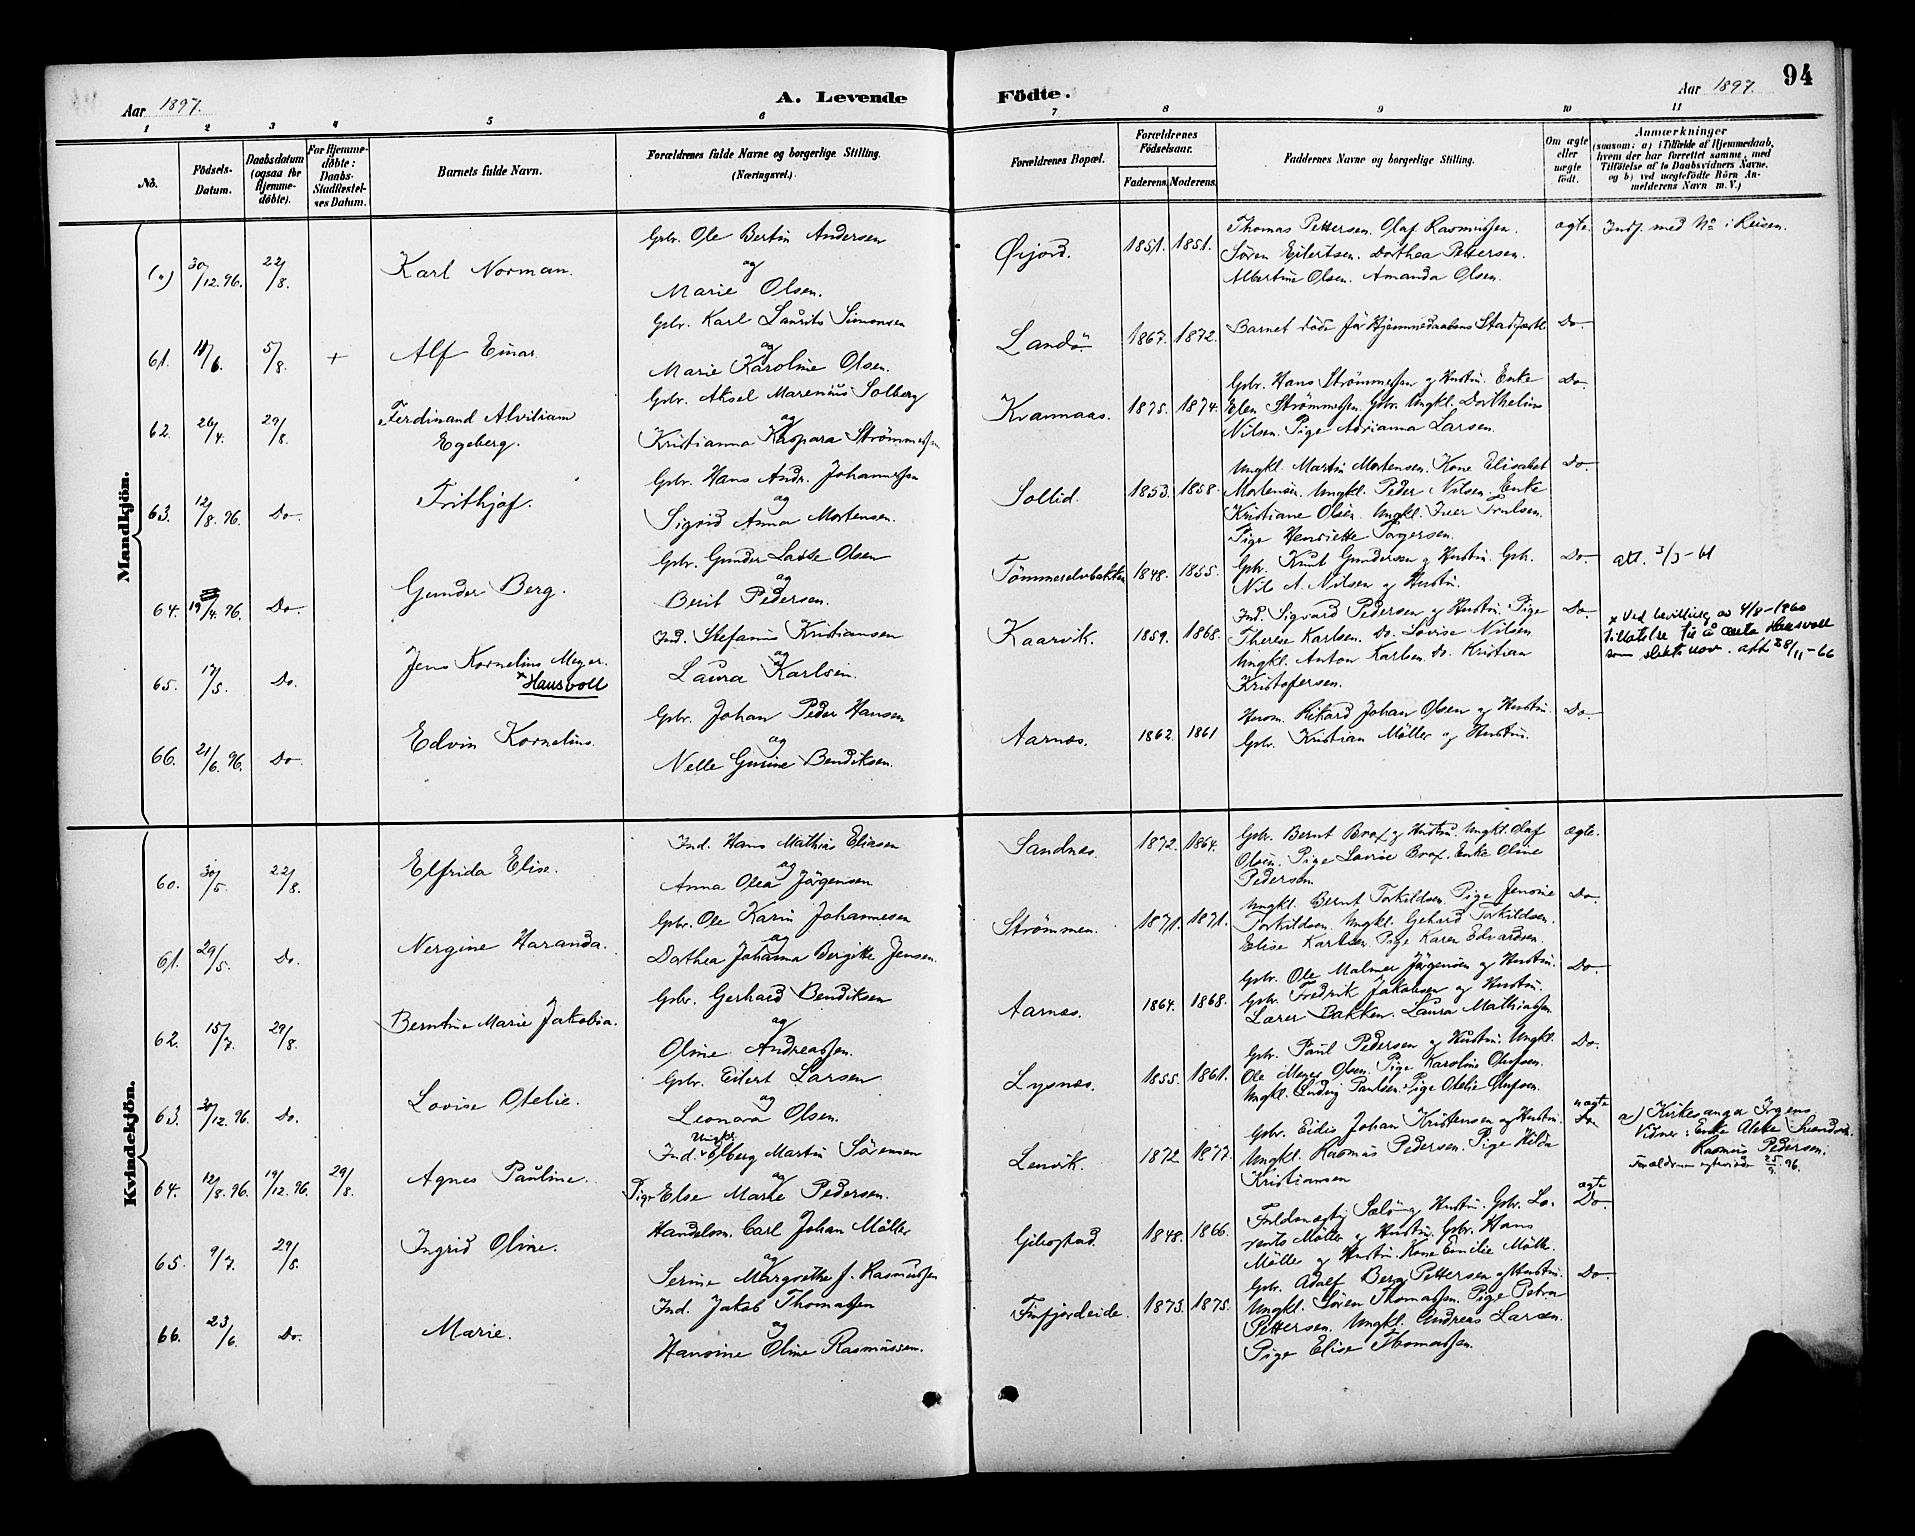 Aar 1897. A. Levende Födte. Aar 1897. 94
1 2 3 4 5 6 7 8 9 10 11
No. Födsels-Datum. Daabsdatum (ogsaa for Hjemmedöbte). For Hjemmedöbte: Daabs-Stadfæstelses Datum. Barnets fulde Navn. Forældrenes fulde Navne og borgerlige Stilling. (Næringsvei.) Forældrenes Bopæl. Forældrenes Födselsaar. Faderens. Moderens. Faddernes Navne og borgerlige Stilling. Om ægte eller uægte födt. Anmærkninger (saasom: a) i Tilfælde af Hjemmedaab, hvem der har forrettet samme, med Tilföielse af to Daabsvidners Navne, og b) ved uægtefödte Börn Anmelderens Navn m. V.)
Mandkjön.
(") 30/12.96. 22/8. Karl Norman.
Gbr. Ole Bertin Andersen
og
Marie Olsen.
Öijord. 1851. 1851.
Thomas Pettersen. Olaf Rasmussen.
Sören Eilertsen. Dorthea Pettersen.
Albertine Olsen. Amanda Olsen.
ægte. Indf. med No i Reisen.
61. 11/6. 5/8. + Alf Einar
Gbr. Karl Laurits Simonsen
og
Marie Karoline Olsen.
Landö. 1867. 1872.
Barnet döde för Hjemmedaabens Stadfæst.
Do.
62. 26/4. 29/8. Ferdinand Alvilian
Egeberg.
Gbr. Aksel Marenius Solberg
og
Kristianna Kaspara Strömmessen
Kvannaas. 1875. 1874.
Gbr. Hans Strömmessen og Hustru. Enke
Elen Strömmessen. Gbr. Ungkl. Dorthelius
Nilsen. Pige Adrianna Larsen.
Do.
63. 12/8.96. Do. Frithjof.
Gbr. Hans Andr. Johannessen
og
Sigrid Anna Mortensen.
Sollid. 1853. 1858.
Ungkl. Martin Mortensen. Kone Elisabet
Mortensen. Ungkl. Peder Nilsen. Enke
Kristiane Olsen. Ungkl. Iver Trulsen.
Pige Henriette Torgersen.
Do.
64. 19/4.96. Do. Gunder Berg.
Gbr. Gunder Lasse Olsen
og
Berit Pedersen.
Tömmerelvbakken 1848. 1855.
Gbr. Knut Gundersen og Hustru. Gbr.
Nils A. Nilsen og Hustru.
Do. att. 3/3-61
65. 17/5. Do. Jens Kornelius Meyer.
x Hansvoll
Ind. Stefanus Kristiansen
og
Laura Karlsen.
Kaarvik. 1859. 1868.
Ind. Sigvard Pedersen og Hustru. Pige
Therese Karlsen. Do. Lovise Nilsen
Ungkl. Anton Karlsen. Do. Kristian
Kristofersen.
Do.
x Ved bevilling av 4/8-1960
tillatelse til å anta Hansvoll
som slektsnavn. att 28/11-66
66. 21/6.96. Do. Edvin Kornelius.
Gbr. Johan Peder Hansen
og
Nelle Gurine Bendiksen.
Aarnes. 1862. 1861
Herom. Rikard Johan Olsen og Hustru.
Gbr. Kristian Möller og Hustru.
Do.
Kvindekjön.
60. 30/5. 22/8. Elfrida Elise.
Ind. Hans Mathias Eliasen
og
Anna Olea Jörgensen
Sandnes. 1872. 1864.
Gbr. Bernt Brox og Hustru. Ungkl. Olaf
Olsen. Pige Lovise Brox. Enke Oline
Pedersen
ægte.
61. 29/5. Do. Nergine Haranda.
Gbr. Ole Karin Johannesen
og
Dorthea Johanna Bergitte Jensen.
Strömmen. 1871. 1871.
Ungkl. Bernt Torkildsen. Pige Jensine
Torkildsen. Ungkl. Gerhard Torkildsen.
Elise Karlsen. Pige Karen Edvardsen.
Do.
62. 15/7. 29/8. Berntine Marie Jakobia.
Gbr. Gerhard Bendiksen
og
Oline Andreassen.
Aarnes. 1864. 1868.
Gbr. Ole Malmer Jörgensen og Hustru.
Gbr. Fredrik Jakobsen og Hustru.
Lærer Bakken. Laura Mathiassen.
Do.
63. 30/12.96. Do. Lovise Otelie.
Gbr. Eilert Larsen
og
Leonora Olsen.
Lysnes. 1855. 1861.
Gbr. Paul Pedersen og Hustru. Ungkl.
Ole Meyer Olsen. Pige Karoline Olufsen.
Ungkl. Ludvig Paulsen. Pige Otelie Olufsen.
Do.
64. 12/8.96. 19/12.96. 29/8. Agnes Pauline.
Ungkl.
Ind. Elberg Martin Sörensen
og
Pige Else Marie Pedersen.
Lenvik. 1872 1877.
Gbr. Eidis Johan Kristensen og Hustru.
Ungkl. Rasmus Pedersen. Pige Hilda
Kristiansen
uægte
a) Kirkesanger Irgens
Vidner: Enke
Rasmus Pedersen.
65. 9/7. 29/8. Ingrid Oline.
Handelsm. Carl Johan Möller
og
Serine Margrethe f. Rasmussen
Gibostad. 1848. 1866.
Gbr. Lo-
rents Möller og Hustru. Gbr. Hans
Möller og Hustru. Kone Emilie Möller.
ægte
Do.
66. 23/6. Do. Marie.
Ind. Jakob Thomassen
og
Hansine Oline Rasmussen.
Finfjordeide. 1873. 1875.
Gbr. Adolf Berg Pettersen og Hustru.
Ungkl. Sören Thomassen. Pige Petra
Pettersen. Ungkl. Andreas Larsen.
Pige Elise Thomassen.
Do.